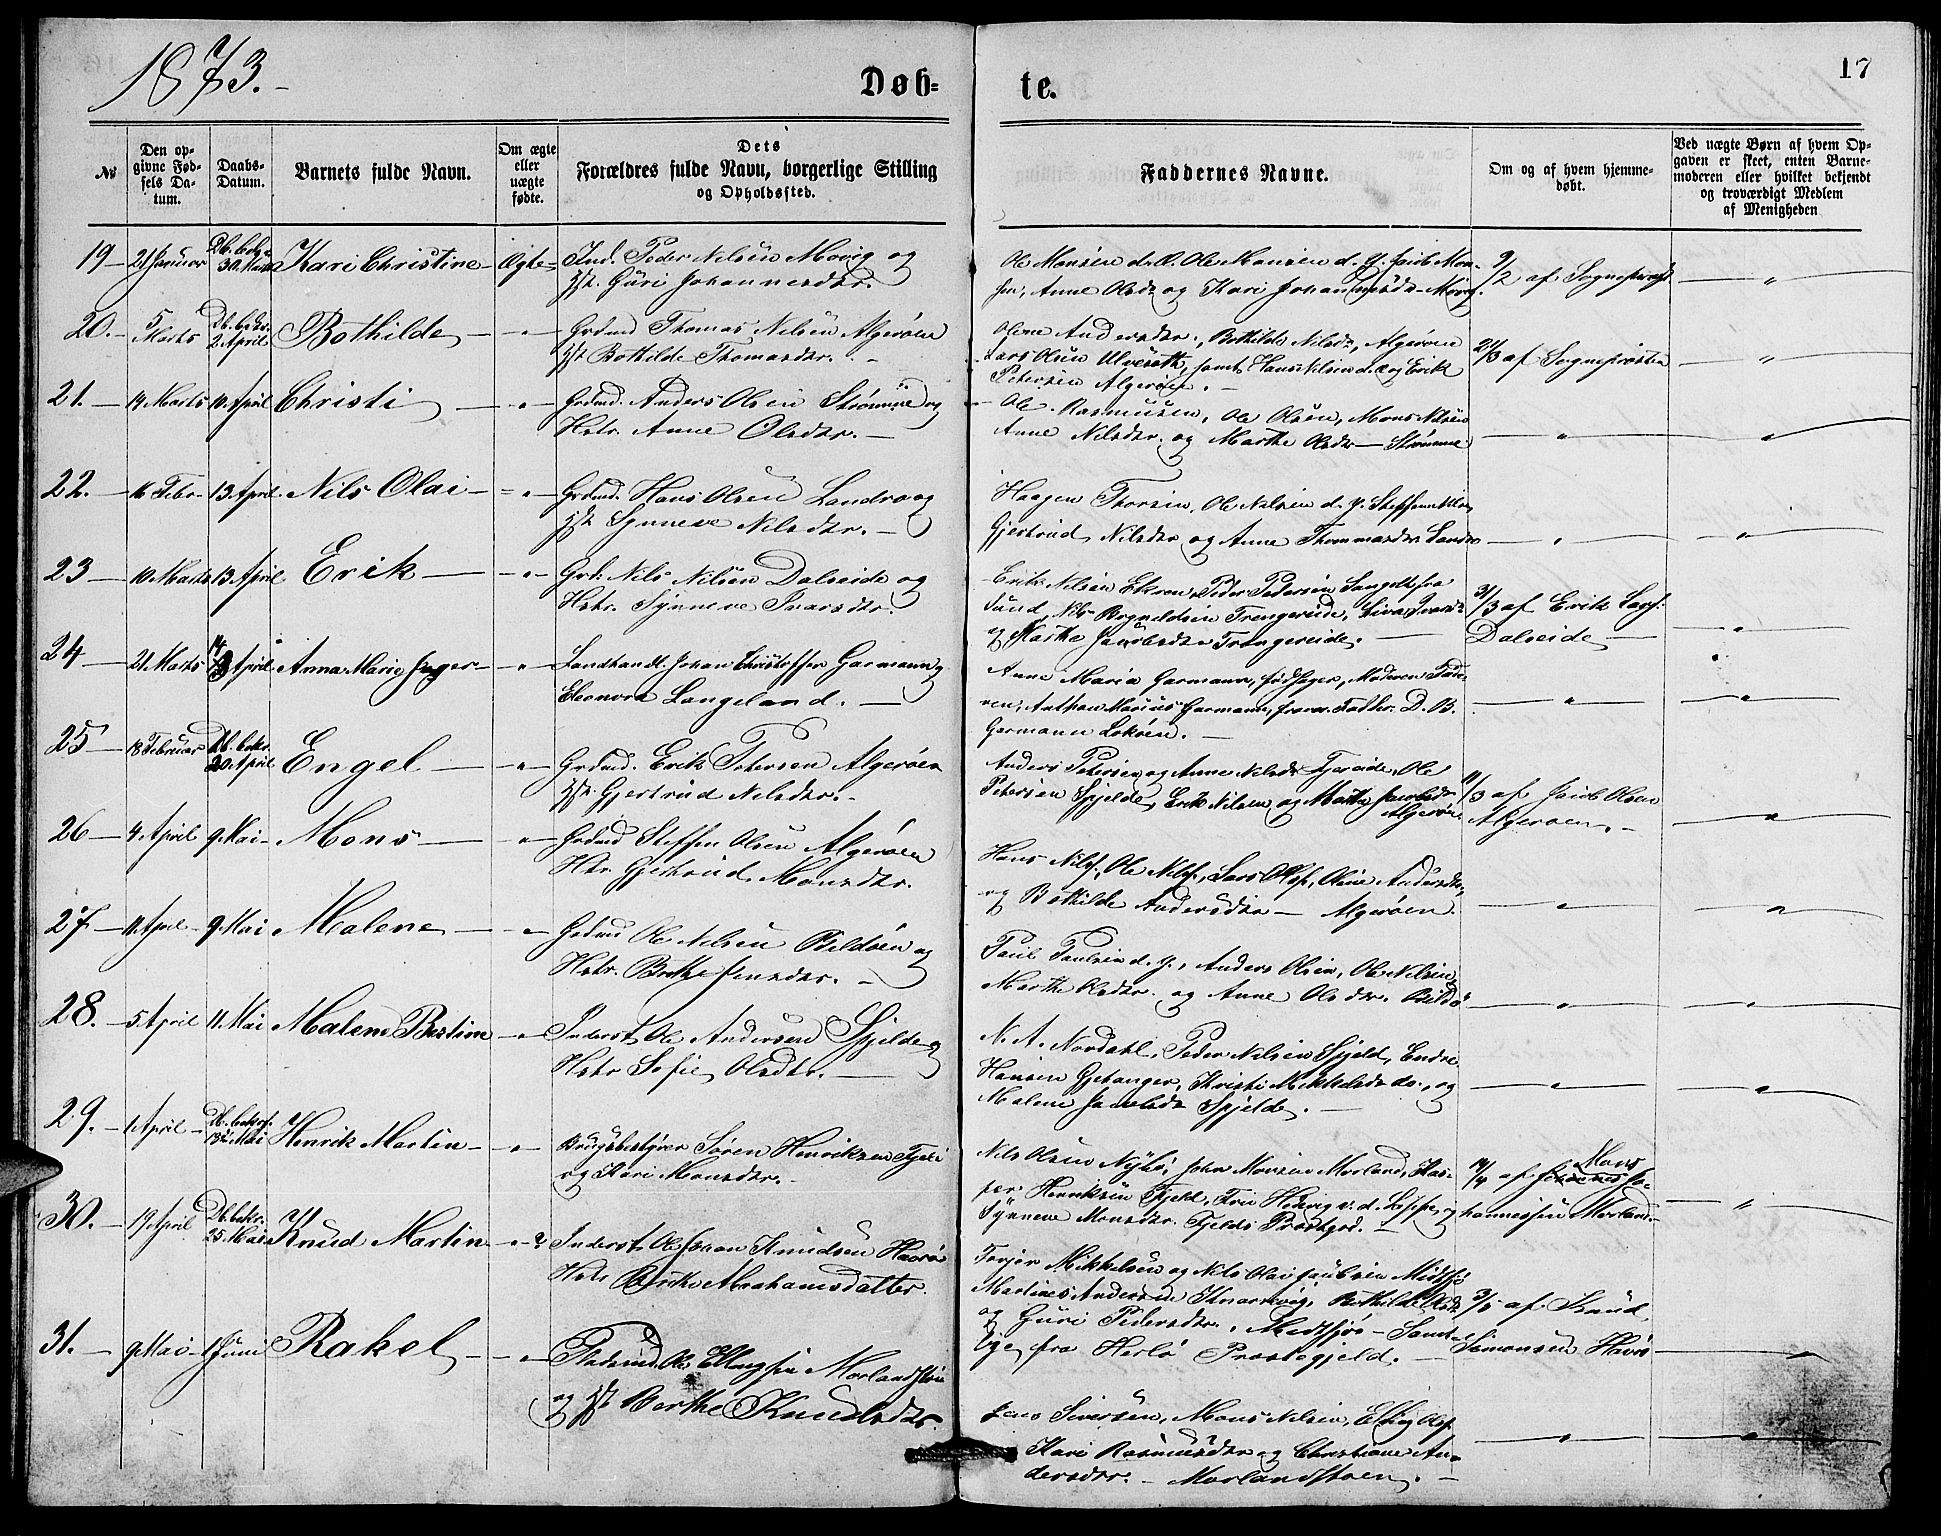 1873.
Døb-
te.
17
№
Den op-
givne Fød-
sels Da-
tum.
Daabs-
Datum.
Barnets fulde Navn.
Om ægte
eller
uægte
fødte.
Dets
Forældres fulde Navn, borgerlige Stilling
og Opholdssted.
Faddernes Navne.
Om og af hvem hjemme-
døbt.
Ved uægte Børn af hvem Op-
gaven er skeet, enten Barne-
moderen eller hvilket bekjendt
og troværdigt Medlem
af Menigheden
19 — 21 Januar Db. bekr. 30 Marts Kari Christine — Ægte — Ind. Peder Nilsen Movig og
Guri Johannesdtr.
Ole Monsen d. Æ. Ole Monsen d. Y. Jacob Mon-
sen, Anne Olsdr og Kari Johannesdr Movig.
9/2 af Sognepræst
20. — 5 Marts Db. bekr. 2 April Bothilde — " — Grdmd Thomas Nilsen Algerøen
Bothilde Thomasdtr. —
Oline Andersdtr., Bothilde Nilsdr, Algerøen
Lars Olsen Ulveseth, samt Hans Nilsen d. æ og Erik
Petersen Algerøen. —
21/3 af Sognepræsten
21. — 14 Marts 10 April Christi — " — Grdmd. Anders Olsen Strømme og
Hstr. Anne Olsdtr. —
Ole Rasmusen, Ole Olsen, Mons Nilsen
Anne Nilsdtr. og Marthe Olsdr — Strømme
22. — 16 Febr — 13 April Nils Olai — " — Grdmd. Hans Olsen Landro og
Synneve Nilsdtr. —
Haagen Thorsen, Ole Nilsen d. y. Steffen Nils
Gjertrud Nilsdtr og Anne Thommasdr Landro
23 — 10 Marts 13 April Erik — " — Grd. Nils Nilsen Dalseide og
Hstr. Synneve Ivarsdtr.
Erik Nilsen Ekren, Peder Pedersen Langeltefra
Sund, Nils Trengereide,
og Marthe Jacobsdr Trengereide. —
31/3 af Erik
Dalseide —
24 — 21 Marts 14 April Anna Marie Jæger — " — Landhandl. Johan Christoffer Garmann og
Eleonora Langeland. —
Anne Maria Garmann, født Jæger, Moderen Fade-
ren, Anthon Marius Garmann, D. B.
Garmann Løkøen. —
25 — 18 Februar Db. bekr. 20 April Engel — " — Grdmd. Erik Petersen Algerøen
Gjertrud Nilsdtr. —
Anders Petersen og Anne Nilsdr Tjereide, Ole
Petersen Spjelde, Erik Nilsen og Marthe Jacobsdr
Algerøen.
11/3 af Jacob Olsen
Algerøen. —
26 — 4 April 9 Mai — Mons — " — Grdmd Steffen Olsen Algerøen
Hstr Gjertrud Monsdtr.
Hans Nils., Ole Nils., Lars Ols., Oline Andersdtr,
og Bothilde Andersdtr — Algerøen.
27 — 11 April — 9 Mai Malene — " — Grdmd Ole Nilsen Bildøen og
Hstr. Berthe Jensdtr. —
Paul Paulsen d. y., Anders Olsen, Ole Nilsen,
Marthe Olsdtr. og Anne Olsdtr. Bildø
28. — 5 April 11 Mai Malene Bertine — " — Inderst Ole Andersen Spjelde og
Hstr Sofie Olsdtr. —
N. A. Nordahl, Peder Nilsen Spjeld, Endre
Hansen Gjetanger, Kristi Mikkelsdr do., og
Malene Jacobsdr Spjelde. —
29. — 1 April — Db. bekr. 13 Mai Henrik Martin — " — Brugsbestyrer Søren Henriksen Fjeld
og Kari Monsdtr. —
Nils Olsen Nyhø, John Monsen Morland, Kas-
per Henriksen Fjeld, Fru Hedvig v. d. Lippe, og
Synneve Monsdtr. Fjelds Prestgrd. —
14/4 af Mons Jo-
hannessen Morland —
30. — 19 April Db. bekr. 25 Mai Knud Martin — " ? Inderst Ole Johan Knudsen Havrø
Hstr Berthe Abrahamsdatter.
Torjer Mikkelsen og Nils Olai Jacobsen Midtsjø
Martines Andersen Knarrevig, Bothilde Olsdr
og Guri Pedersdtr., Midtsjø — Samt-
lige fra Herlø Præstegjeld. —
3/5 af Knud
Simonsen Havrø
31. — 9 Mai — 1 Juni Rakel — " — Pladsmd Ole Ellingsen Morlandstøen
og Berthe Knudsdtr.
Jens Sivertsen, Mons Nilsen, Elling Ols.
Kari Rasmusdtr og Christiane An-
dersdtr. — Morlandstøen. —